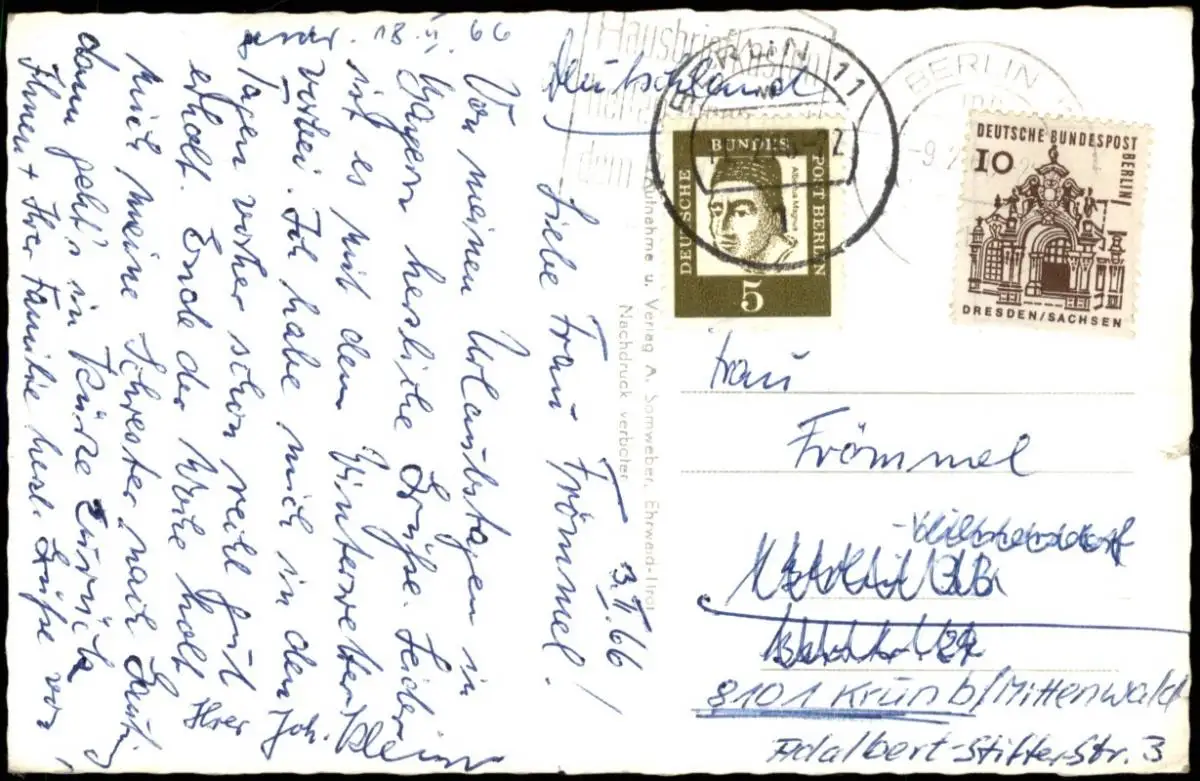 3.II.66
Liebe Frau Frömmel!
Von meinen Urlaubstagen in
Bayern herzliche Grüße. Leider
ist es mit dem Winterwetter
vorbei. Ich habe mich in den
Tagen vorher schon recht gut
erholt. Ende der Woche holt
mich meine Schwester nach
dann geht's in Kürze zurück
Ihnen + Ihrer Familie herzl. Grüße von
Ihrer Joh. Klein
66
Deutschland
Frau
Frömmel
-Wilmersdorf
8101 Krün b/Mittenwald
Adalbert-Stifter-Str. 3
Aufnahme u. Verlag A. Somweber, Ehrwald-Tirol
Nachdruck verboten
DEUTSCHE
BUNDES
POST BERLIN
Albertus Magnus
5
DEUTSCHE BUNDESPOST
BERLIN
10
DRESDEN/SACHSEN
BERLIN 11
BERLIN
Hausbriefkasten
dem